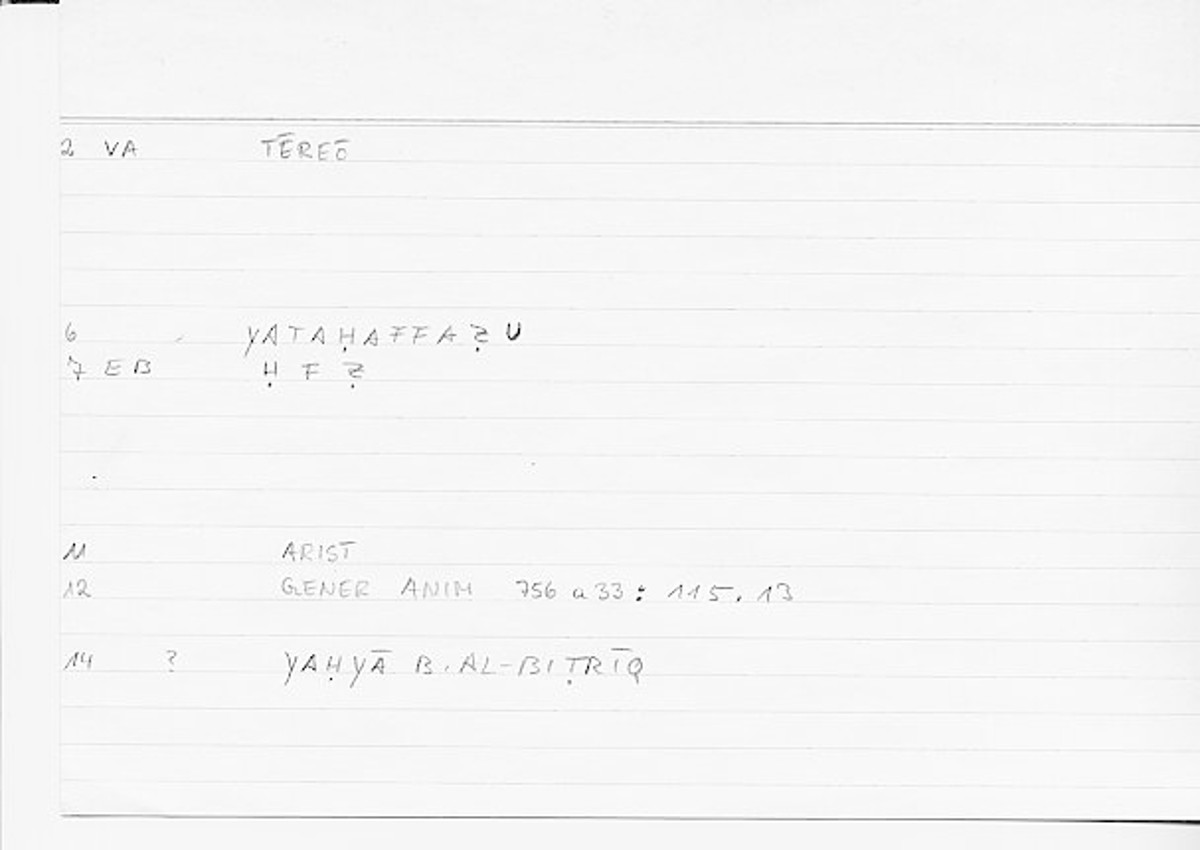 2 VA TĒREŌ
6 YATAḤAFFAẒU
7 EB Ḥ F Ẓ
11 ARIST
12 GENER ANIM 756 a 33 : 115.13
14 ? YAḤYĀ B. AL-BIṬRĪQ